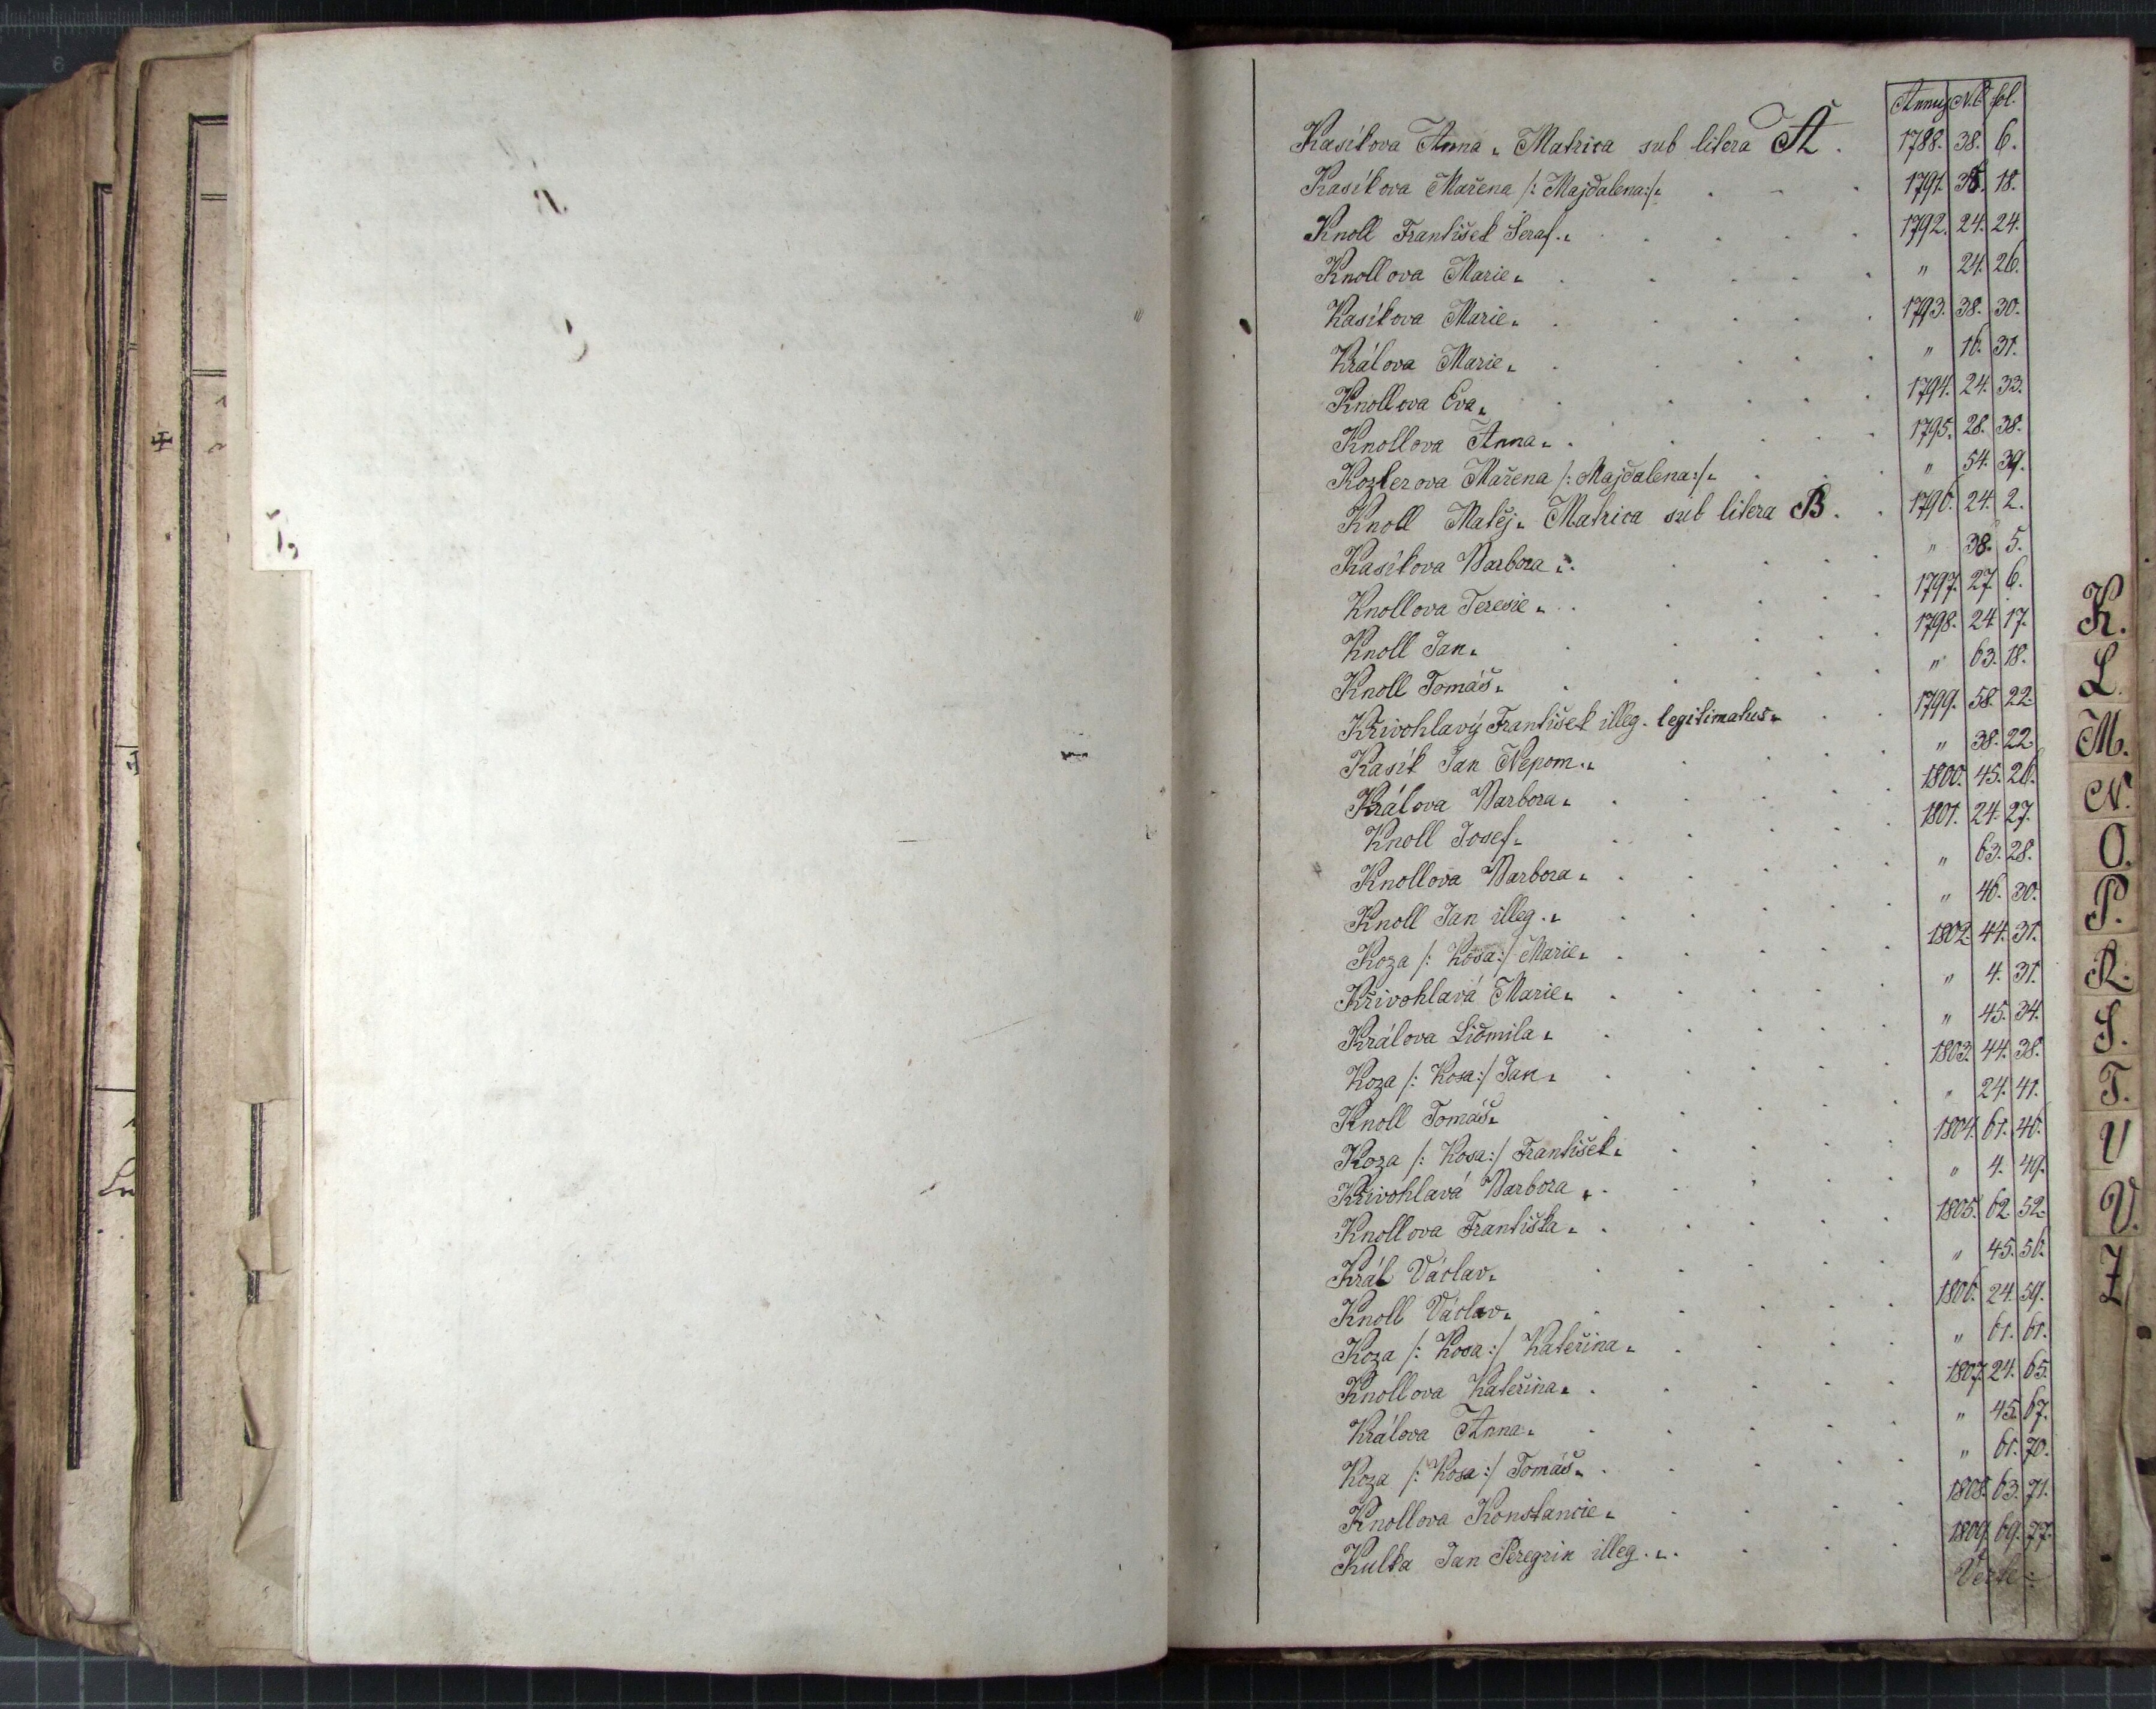 Annus N.C. fol.
Kasíkova Anna. Matrica sub litera A. 1788. 38. 6.
Kasíkova Mařena /: Majdalena:/. 1791. 38. 18.
Knoll František Seraf. 1792. 24. 24.
Knollova Marie. " 24. 26.
Kasíkova Marie. 1793. 38. 30.
Králova Marie. " 16. 31.
Knollova Eva. 1794. 24. 33.
Knollova Anna. 1795. 28. 38.
Kozlerova Mařena /: Majdalena:/. " 54. 39.
Knoll Matěj. Matrica sub litera B. 1796. 24. 2.
Kasíkova Barbora. " 38. 5.
Knollova Teresie. 1797. 27. 6.
Knoll Jan. 1798. 24. 17.
Knoll Tomáš. " 63. 18.
Křivohlavý František illeg. legitimatus. 1799. 58. 22.
Kasík Jan Nepom. " 38. 22.
Králova Barbora. 1800. 45. 26.
Knoll Josef. 1801. 24. 27.
Knollova Barbora. " 63. 28.
Knoll Jan illeg. " 46. 30.
Koza /: Kosa:/ Marie. 1802. 44. 31.
Křivohlavá Marie. " 4. 31.
Králova Lidmila. " 45. 34.
Koza /: Kosa:/ Jan. 1803. 44. 38.
Knoll Tomáš. " 24. 41.
Koza /: Kosa:/ František. 1804. 61. 46.
Křivohlavá Barbora. " 4. 49.
Knollova Františka. 1805. 62. 52.
Král Václav. " 45. 56.
Knoll Václav. 1806. 24. 59.
Koza /: Kosa:/ Kateřina. " 61. 61.
Knollova Kateřina. 1807. 24. 65.
Králova Anna. " 45. 67.
Koza /: Kosa:/ Tomáš. " 61. 70.
Knollova Konstancie. 1808. 63. 71.
Kulka Jan Peregrin illeg. 1809. 69. 77.
Verte
K.
L.
M.
N.
O.
P.
R.
S.
T.
U
V.
Z